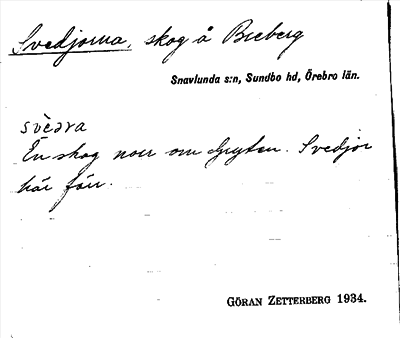 Svedjorna, skog å Breberg
Snavlunda s:n, Sundbo hd, Örebro län.
svèɔra
En skog norr om Gryten. Svedjor
här förr.
GÖRAN ZETTERBERG 1934.